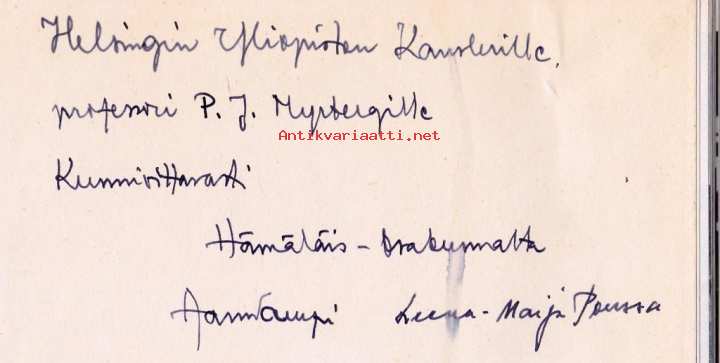 Helsingin Yliopiston Kanslerille,
professori P. J. Myrbergille
Antikvariaatti.net
Kunnioittavasti
Hämäläis-Osakunnalta
Leena-Maija Poussa